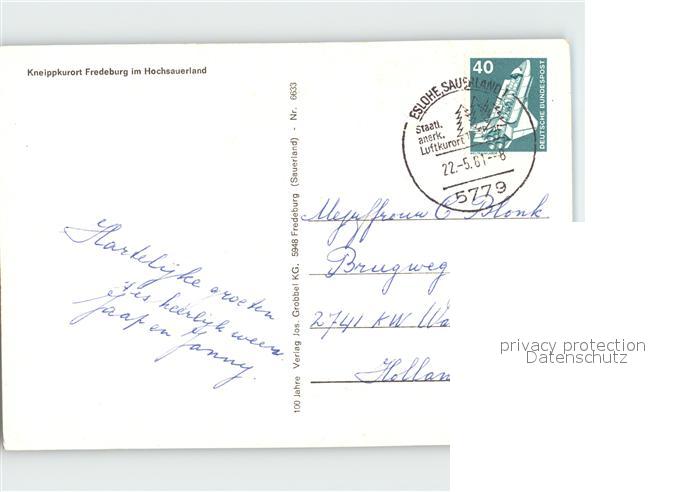 Kneippkurort Fredeburg im Hochsauerland
40
DEUTSCHE BUNDESPOST
ESLOHE, SAUERLAND 1
Staatl.
anerk.
Luftkurort
22.-5.81--8
5779
100 Jahre Verlag Jos. Grobbel KG. 5948 Fredeburg (Sauerland) - Nr. 6633
Hartelijke groeten
't is heerlijk weer.
Jaap en Janny.
Mejuffrouw C Blonk
Brugweg
2741 KW Wa
Hollan
privacy protection
Datenschutz